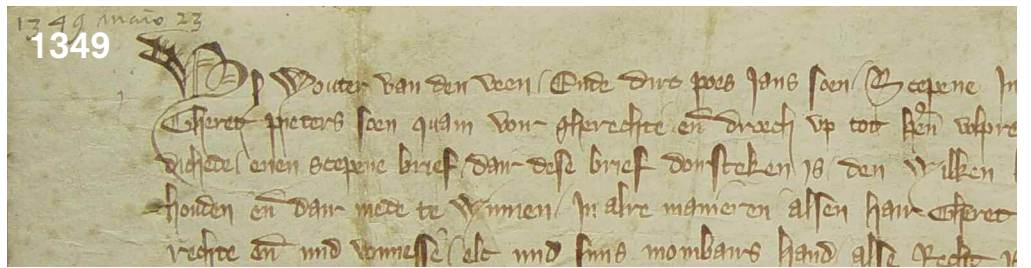 1349 maio 23
1349
Wy Wouter van den veen / Ende dirc poes Jans soen / Scepene In
Gheret pieters soen quam voir gherechte en droech vp tot
dichede / enen scepene brief / dair dese brief doirsteken is / den Wilken
houden en dair mede te Winnen / In alre manieren alsen hair Gheret
rechte en mid vonnesse / elc mid sijns mombairs hand alse Recht is